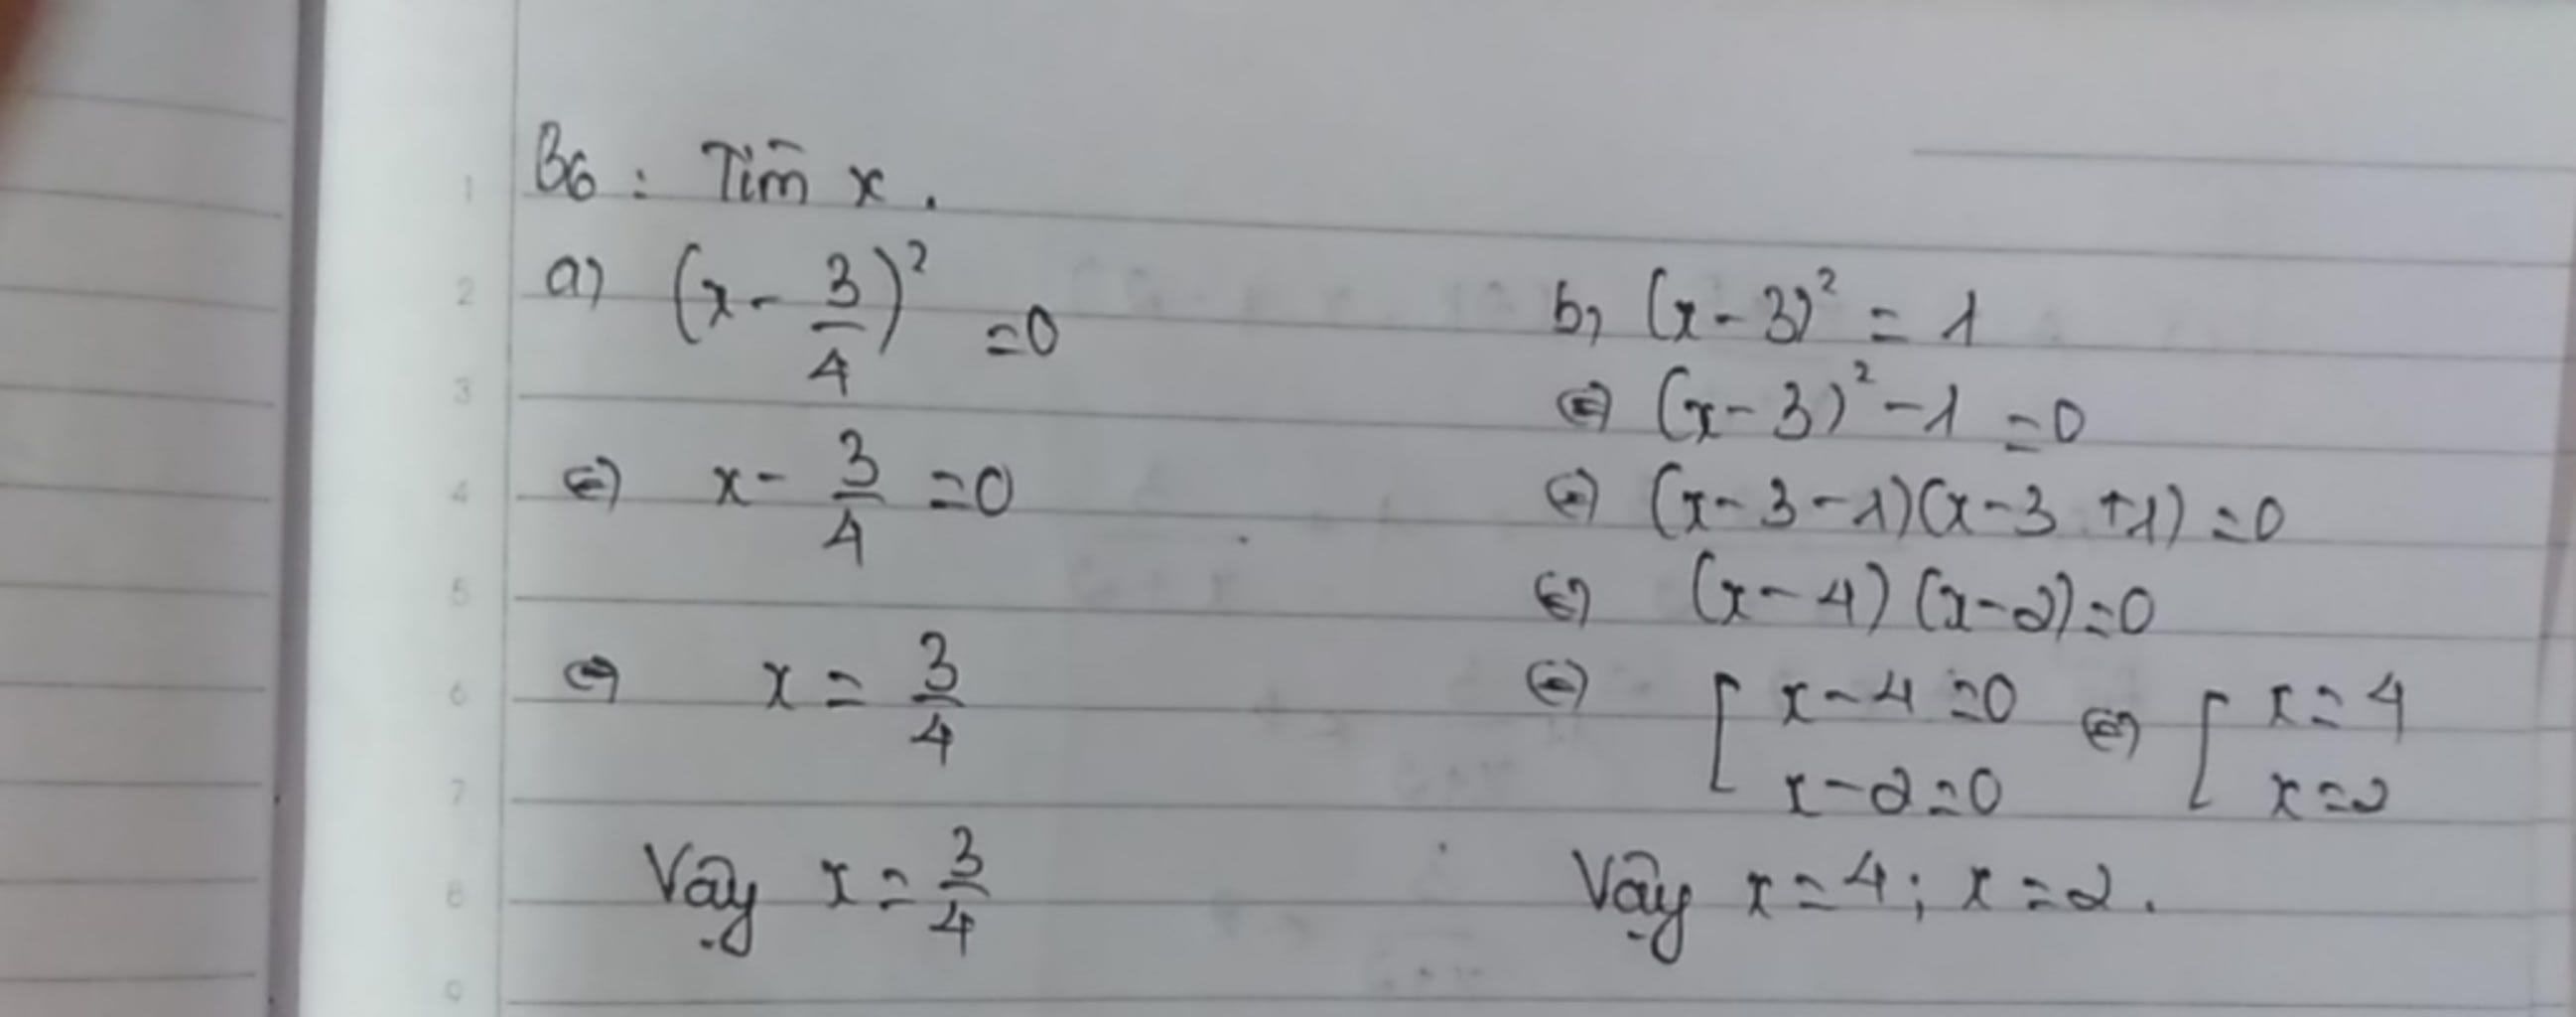 B6 : Tìm x.
a) (x - 3/4)² = 0
⇔ x - 3/4 = 0
⇔ x = 3/4
Vậy x = 3/4
b) (x - 3)² = 1
⇔ (x - 3)² - 1 = 0
⇔ (x - 3 - 1)(x - 3 + 1) = 0
⇔ (x - 4)(x - 2) = 0
⇔ [ x - 4 = 0 ⇔ [ x = 4
x - 2 = 0 x = 2
Vậy x = 4 ; x = 2.
1
2
3
4
5
6
7
8
9